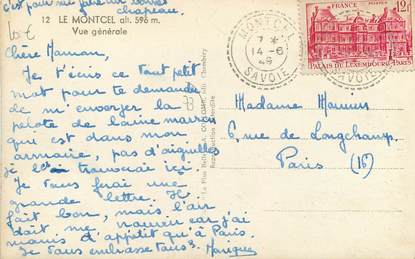 c'est pour me faire un
chapeau.
12 LE MONTCEL alt. 596 m.
Vue générale
Chère Maman,
Je t'écris ce tout petit
mot pour te demander
de m'envoyer la
pelote de laine marron
qui est dans mon
armoire, pas d'aiguilles
je trouverai ici.
Je vous ferai une
grande lettre. Il
fait bon, mais l'air
doit me car j'ai
moins d'appétit qu'à Paris.
Je vous embrasse tous.
MONTCEL
7 *
14 - 6
49
SAVOIE
FRANCE
12F
PALAIS DU LUXEMBOURG-PARIS
SAVOIE
Madame
6, rue de Longchamp
Paris (16)
Reproduction interdite